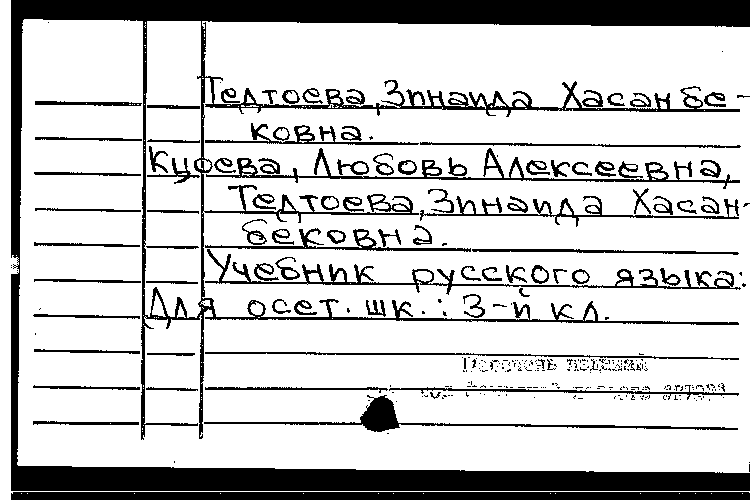 Тедтоева, Зинаида Хасанбе-
ковна.
Куоева, Любовь Алексеевна,
Тедтоева, Зинаида Хасан-
бековна.
Учебник русского языка:
Для осет. шк.: 3-й кл.
под
автора